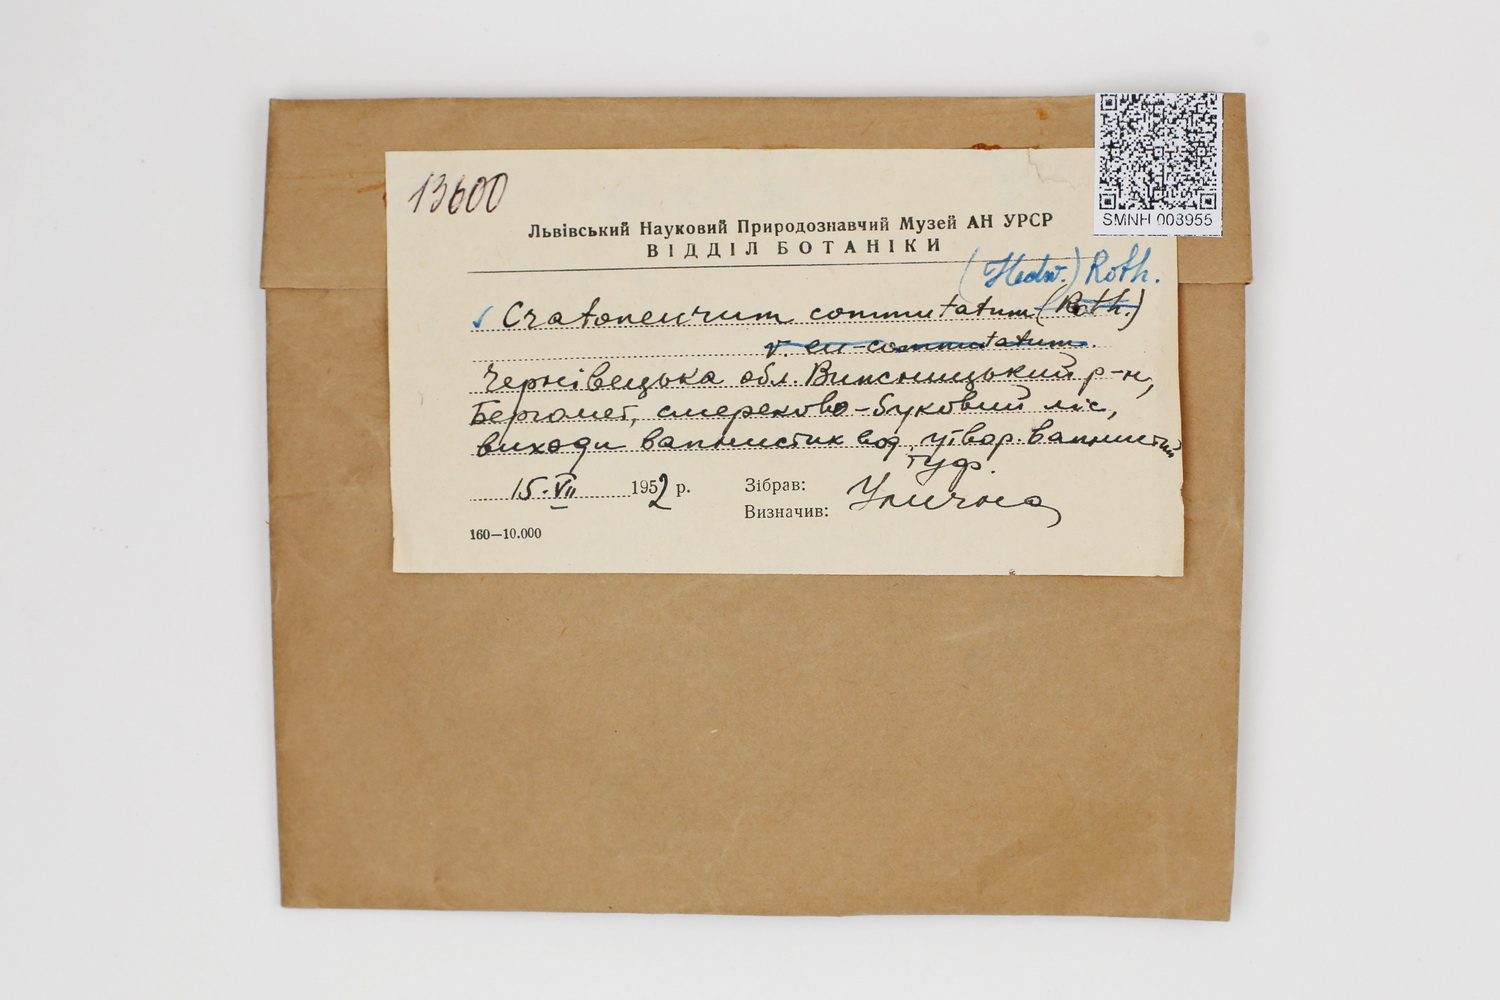 SMNH 003955
13600
Львівський Науковий Природознавчий Музей АН УРСР
ВІДДІЛ БОТАНІКИ
(Hedw.) Roth.
✓ Cratoneurum commutatum (Roth.)
v. eu-commutatum.
Чернівецька обл. Вижницький р-н,
Берегомет, смереково-буковий ліс,
виходи вапнистих вод, утвор. вапнистий
туф.
15.VII 1952 р. Зібрав: Улична
Визначив:
160—10.000